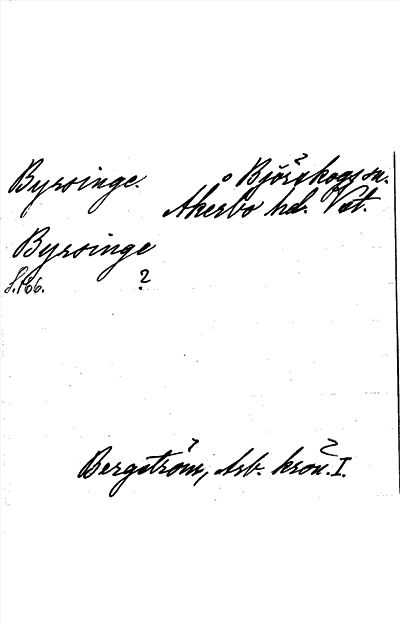 Byrsinge.
Björskogs sn.
Åkerbo hd. Vstm.
Byrsinge
S. 166.
?
Bergström, Arb. krön. I.